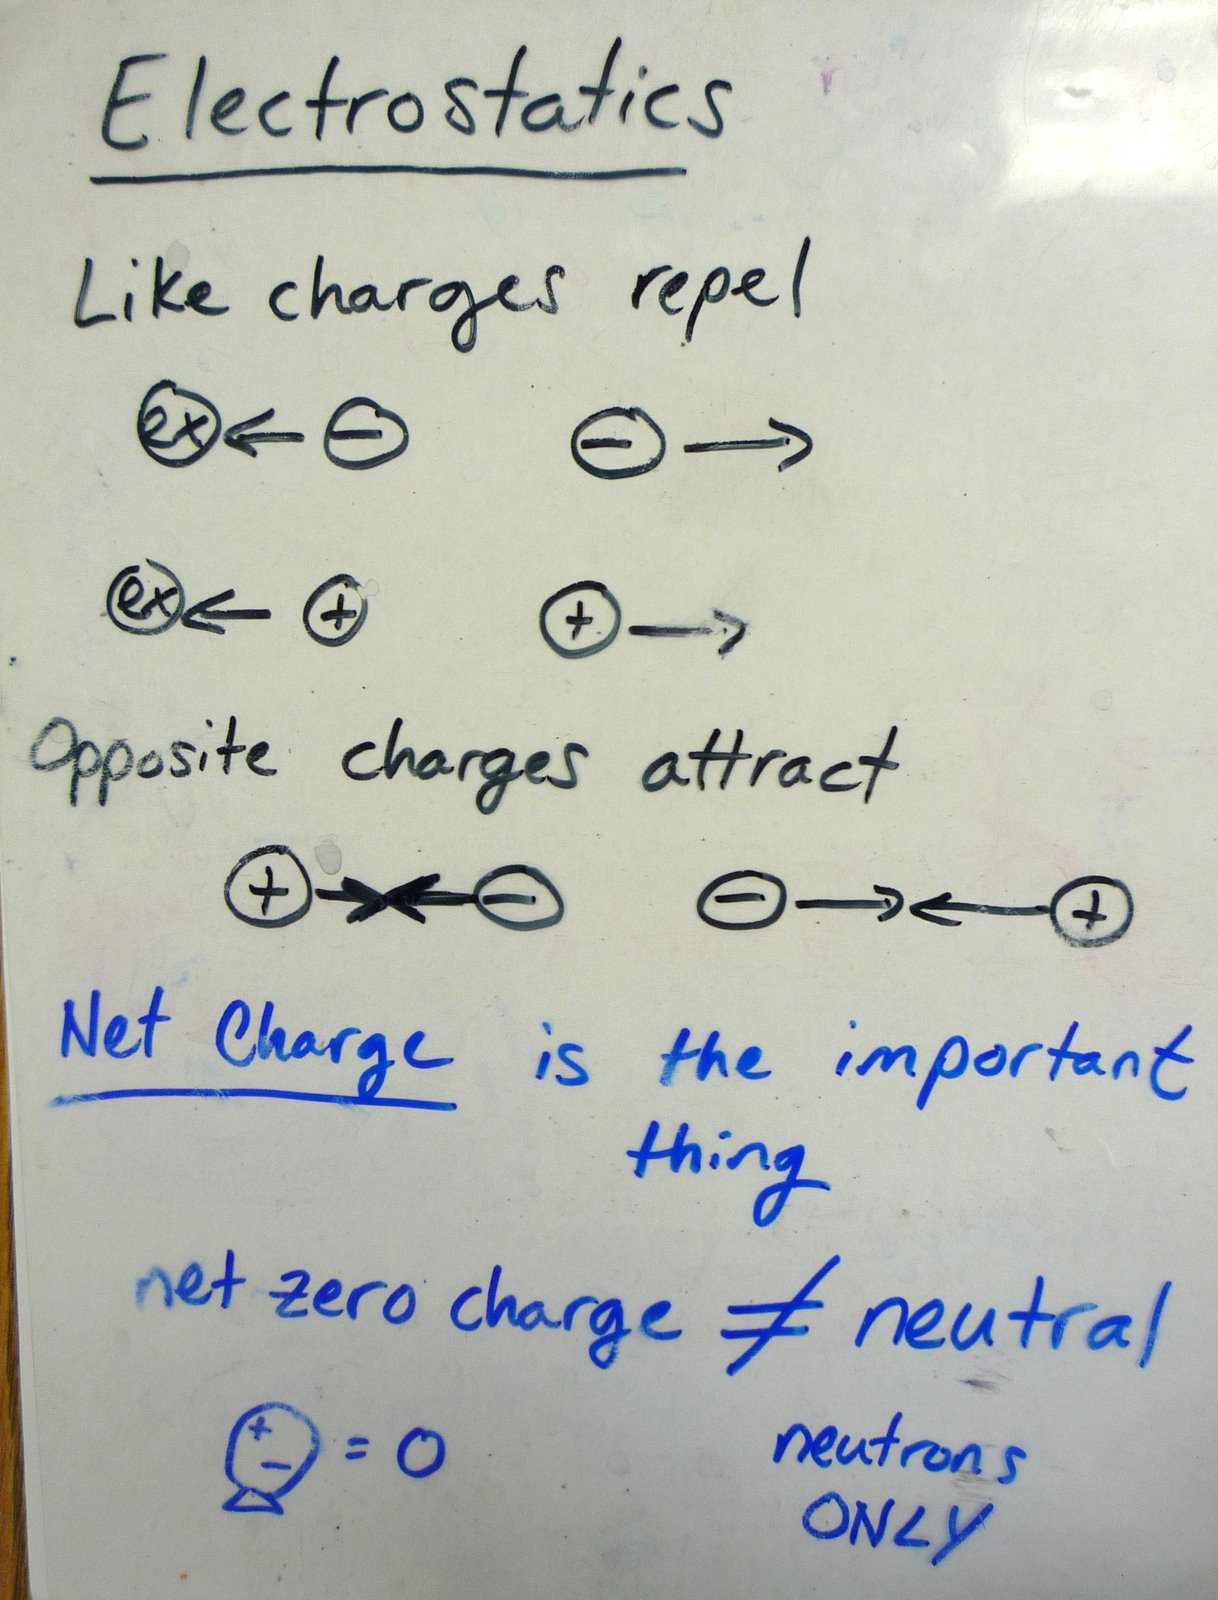 Electrostatics
Like charges repel
ex ← - - →
ex ← + + →
Opposite charges attract
+ → ← - - → ← +
Net Charge is the important
thing
net zero charge ≠ neutral
+ - = 0 neutrons
ONLY